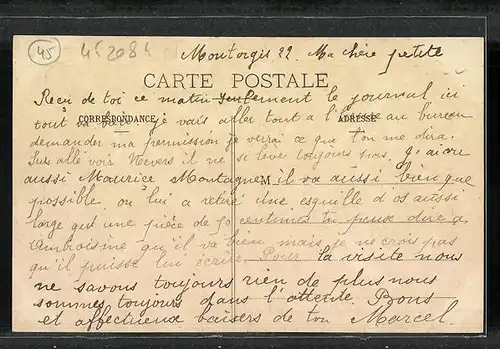 45 452084 Montargis 22. Ma chère petite
CARTE POSTALE
Recu de toi ce matin seulement le journal ici
CORRESPONDANCE ADRESSE
tout va bien. je vais aller tout a l'heure au bureau
demander ma permission je verrai ce que l'on me dira.
Suis allé voir Nevers il ne se lève toujours pas. j'ai vu
aussi Maurice Montagne M il va aussi bien que
possible on lui a retiré une esquille d'os aussi
large qu'une pièce de 50 centimes tu peux dire a
Ambroisine qu'il va bien mais je ne crois pas
qu'il puisse lui écrire. Pour la visite nous
ne savons toujours rien de plus nous
sommes toujours dans l'attente. Bons
et affectueux baisers de ton Marcel.